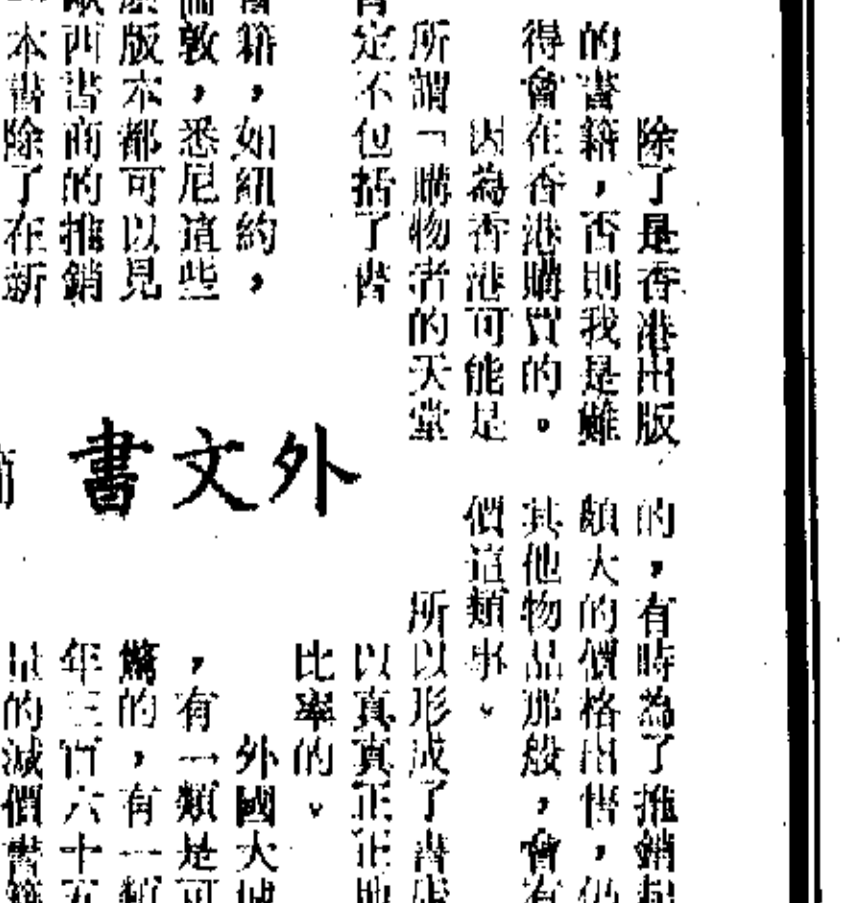 除了是香港出版
的書籍，否則我是難
得會在香港購買的。
因為香港可能是
所謂「購物者的天堂
定不包括了書
籍，如紐約，
敦，悉尼這些
版本都可以見
西書商的推銷
本書除了在新
外文書
的，有時為了推銷起
頗大的價格出售，仍
其他物品那般，會有
價這類事。
所以形成了書店
以真真正正地
比率的。
外國大城
，有一類是可
的，有一類
年三百六十五
量的減價書籍